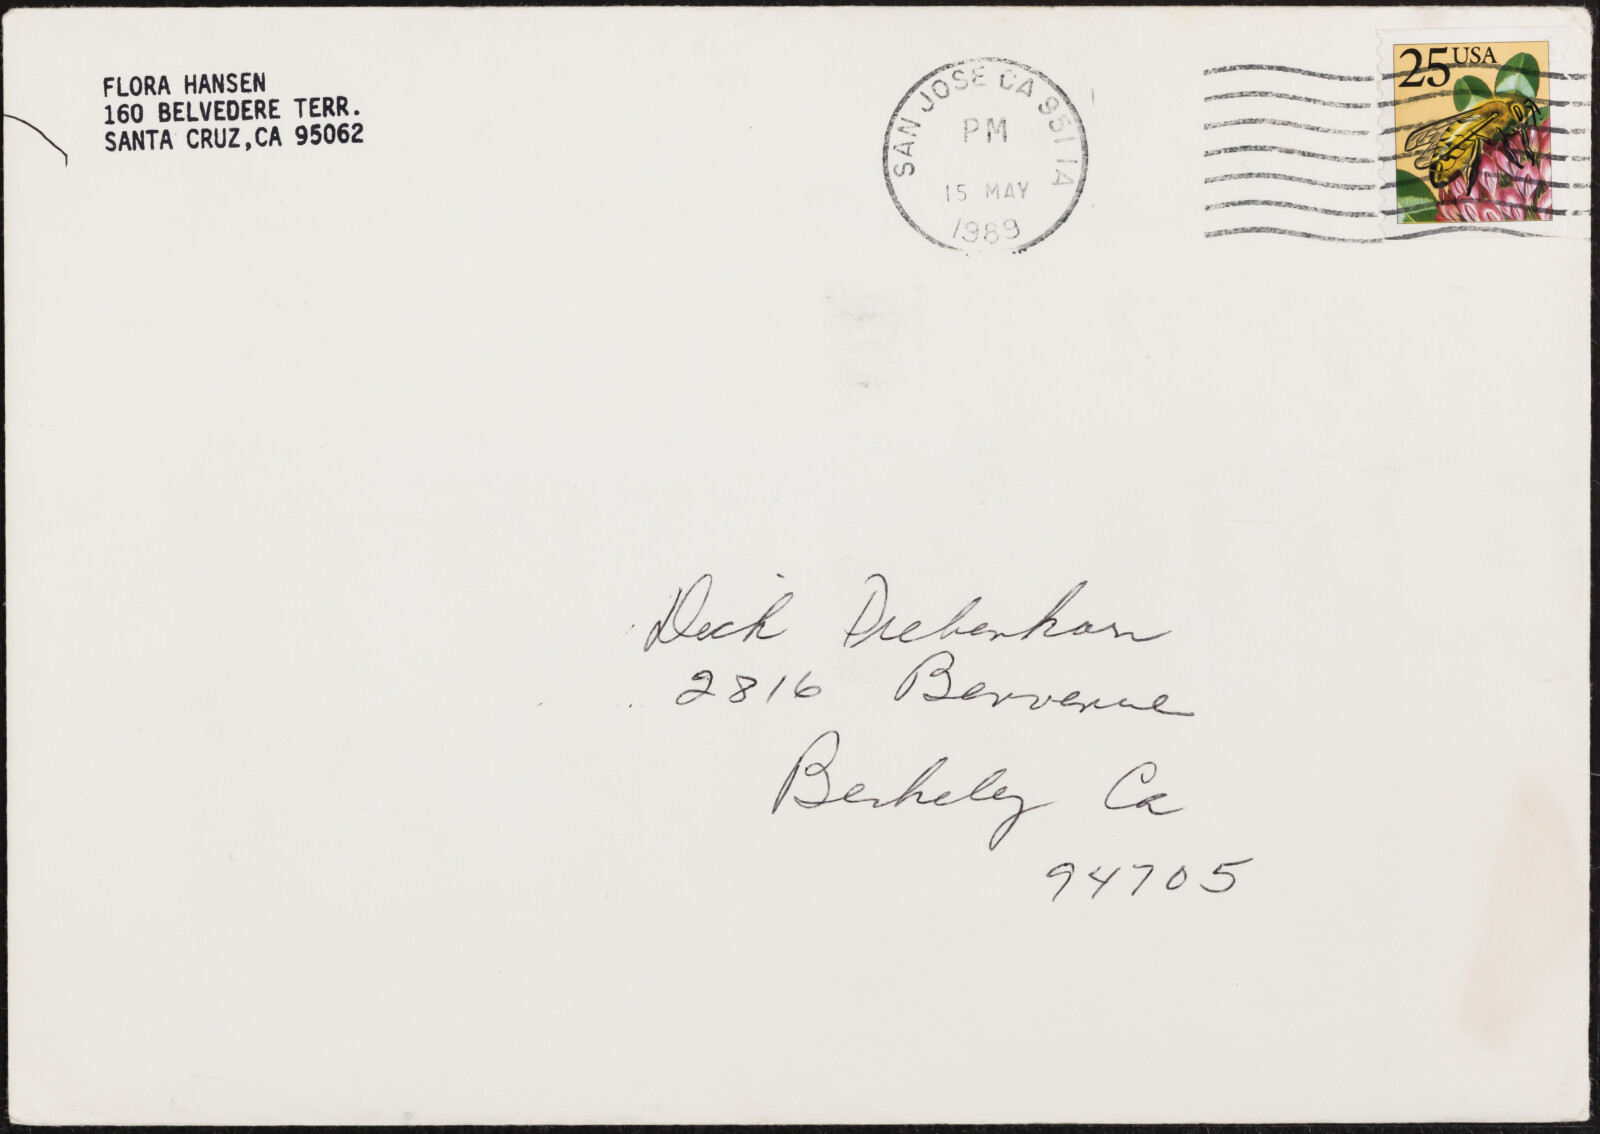 FLORA HANSEN
160 BELVEDERE TERR.
SANTA CRUZ, CA 95062
SAN JOSE CA 951 1A
PM
15 MAY
1989
25 USA
Dick Diebenkorn
2816 Benvenue
Berkeley Ca
94705